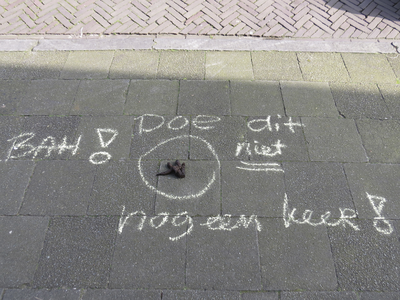 BAH! Doe dit
niet
nog een keer!